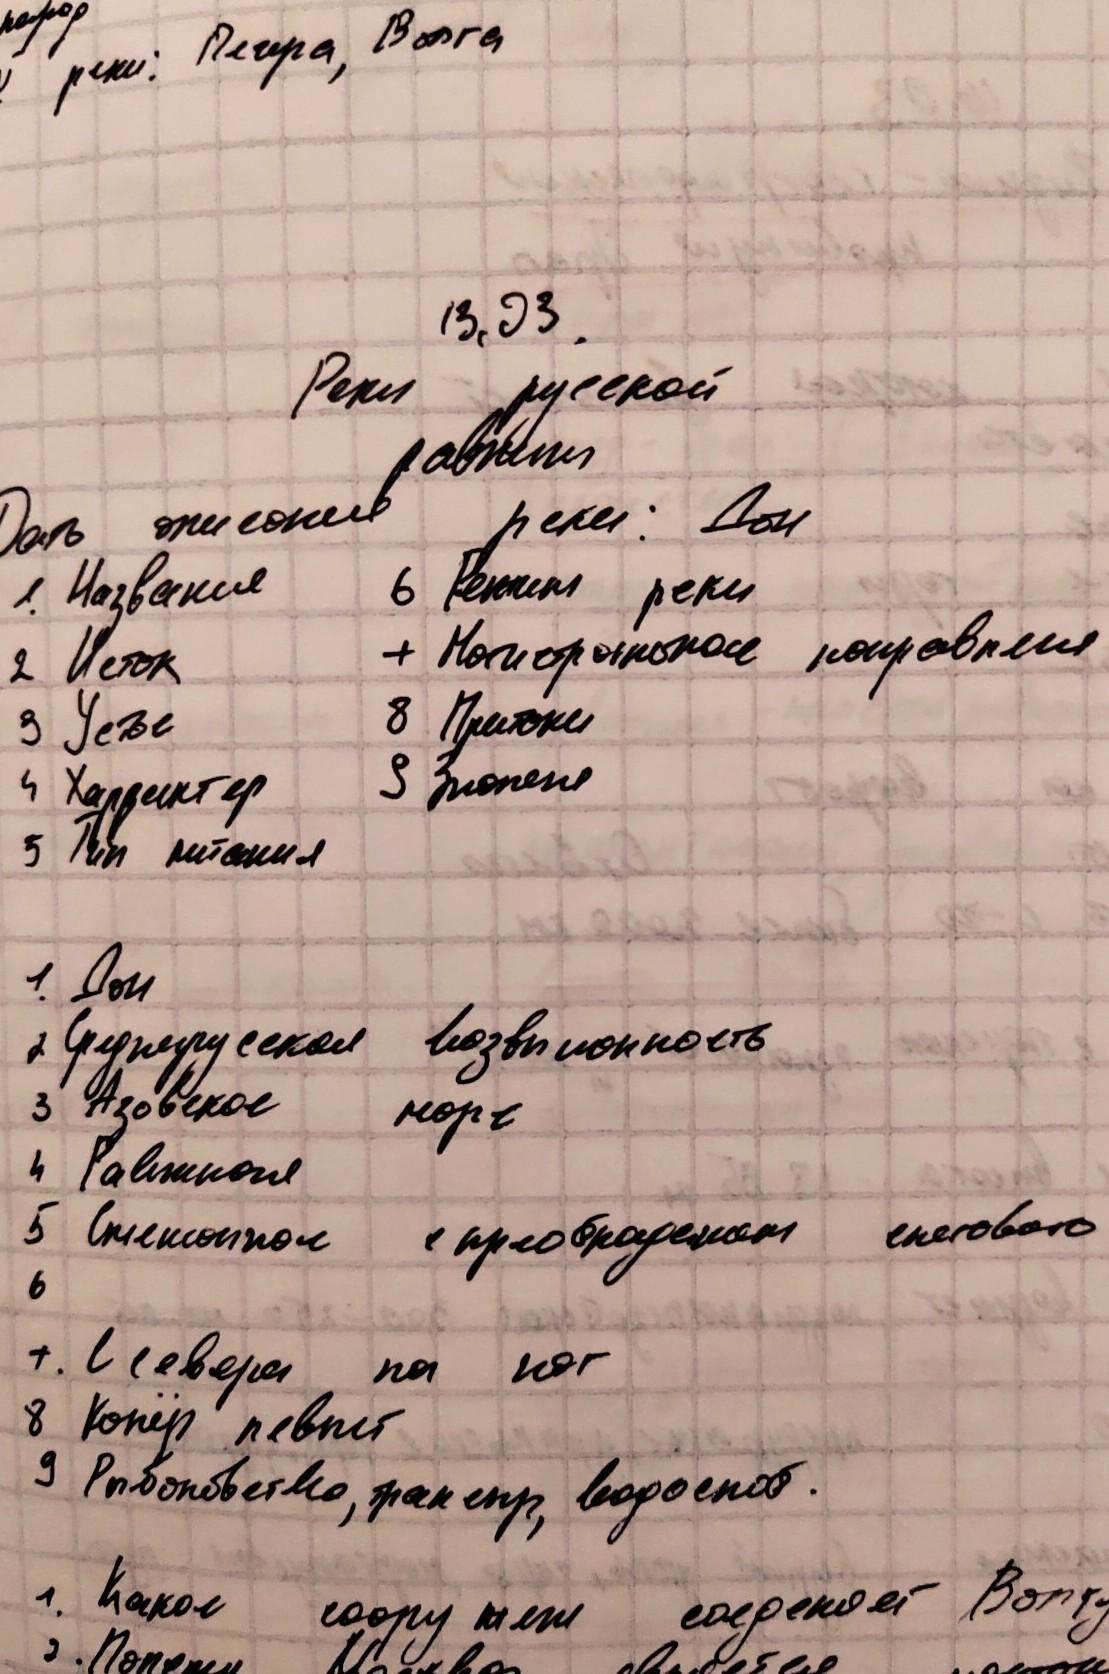 народ
реки: Печора, Волга
13.03.
Реки русской
равнины
Дать описание реки: Дон
1. Название 6 Режим реки
2 Исток 7 направление
3 Устье 8 Притоки
4 Характер 9 Значение
5 Тип питания
1. Дон
2 Среднерусская возвышонность
3 Азовское море
4 Равниная
5 снегового
6
7. С севера на юг
8 Копёр левый
9 водоснаб.
1. Какое соединяет Волгу
2. Почему Москва